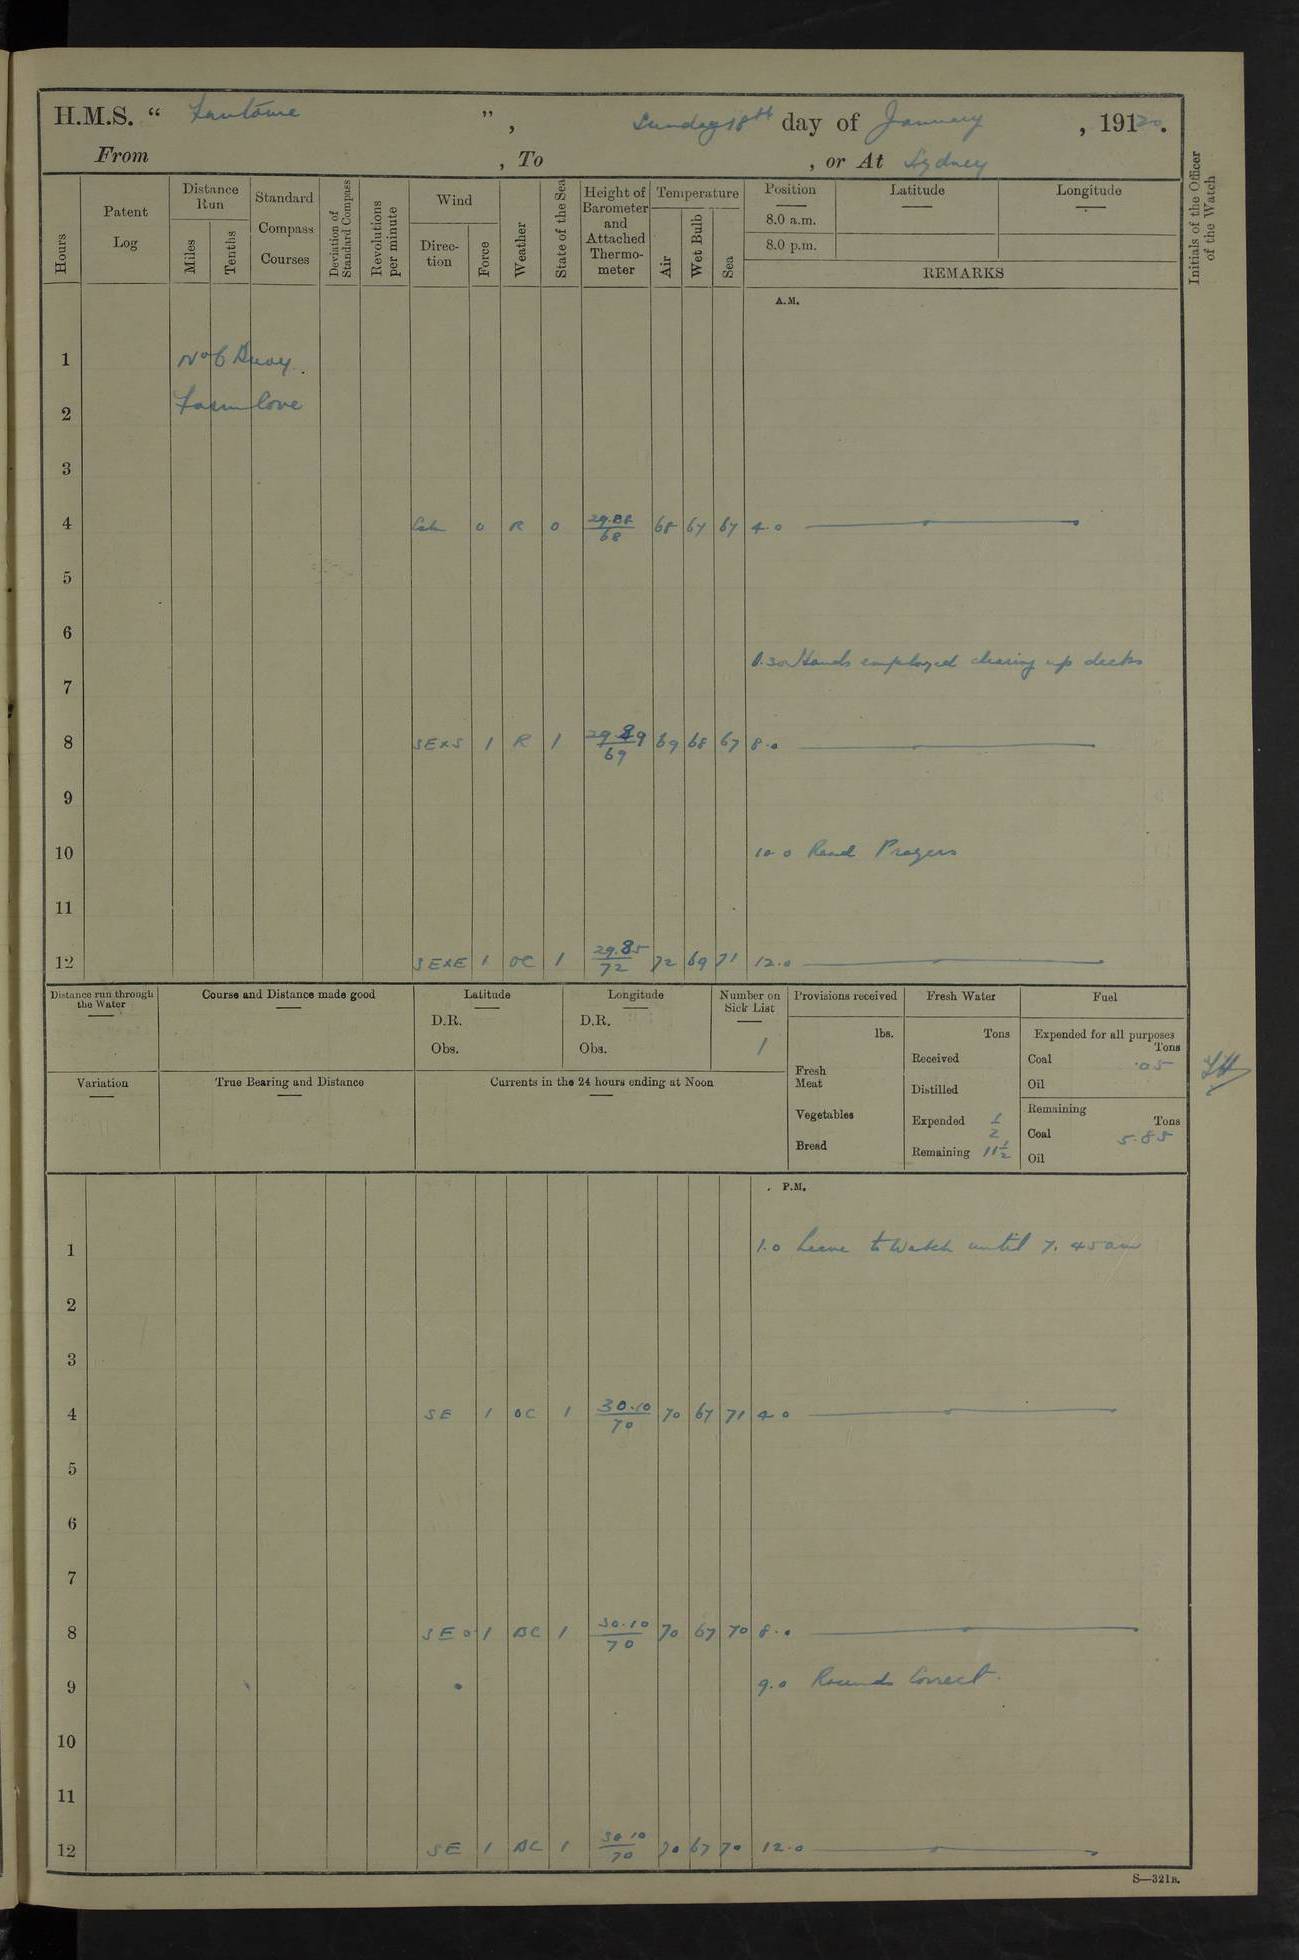 H.M.S. “ Fantome ”, Sunday 18th day of January, 19120.
From , To , or At Sydney
Hours
Patent Log
Distance Run
Miles
Tenths
Standard Compass Courses
Deviation of Standard Compass
Revolutions per minute
Wind
Direction
Force
Weather
State of the Sea
Height of Barometer and Attached Thermo-meter
Temperature
Air
Wet Bulb
Sea
Position
8.0 a.m.
8.0 p.m.
Latitude
Longitude
REMARKS
Initials of the Officer of the Watch
A.M.
1 No 6 Buoy
2 Farm Cove
3
4 Calm 0 R 0 29.88 68 68 67 67 4.0
5
6
Hands employed clearing up decks
7
8 SExS 1 R 1 29.89 69 69 68 67 8.0
9
10 10.0 Read Prayers
11
12 SExE 1 OC 1 29.85 72 72 69 71 12.0
Distance run through the Water
Course and Distance made good
Latitude
D.R.
Obs.
Longitude
D.R.
Obs.
Number on Sick List
1
Provisions received
lbs.
Fresh Meat
Vegetables
Bread
Fresh Water
Tons
Received
Distilled
Expended 1/2
Remaining 11 1/2
Fuel
Expended for all purposes
Tons
Coal .05
Oil
Remaining
Tons
Coal 5.85
Oil
Variation
True Bearing and Distance
Currents in the 24 hours ending at Noon
P.M.
1 1.0 Leave to Watch until 7.45 am
2
3
4 SE 1 OC 1 30.10 70 70 67 71 4.0
5
6
7
8 SE 1 BC 1 30.10 70 70 67 70 8.0
9 9.0 Rounds Correct.
10
11
12 SE 1 BC 1 30.10 70 70 67 70 12.0
S—321B.